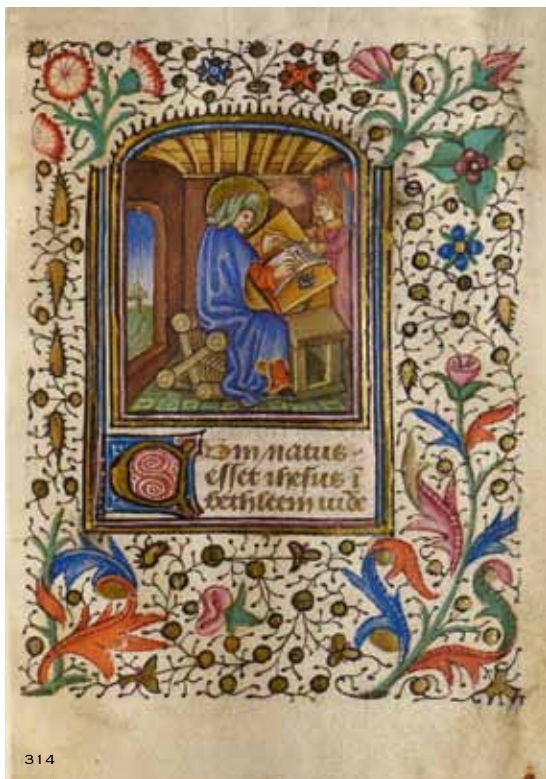 Cum natus
esset ihesus ī
bethleem iude
314